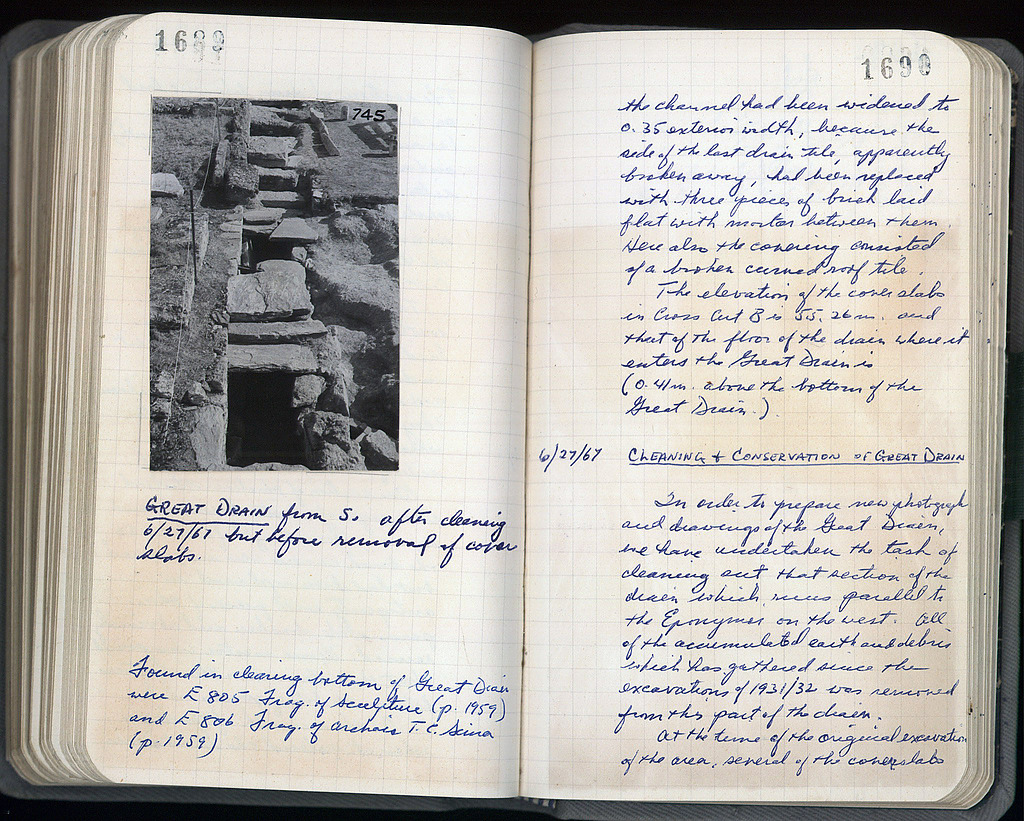 1689
745
GREAT DRAIN from S. after cleaning
6/27/67 but before removal of cover
slabs.
Found in clearing bottom of Great Drain
were E 805 Frag. of Sculpture (p. 1959)
and E 806 Frag. of archaic T.C. Sima
(p. 1959)
1690
the channel had been widened to
0.35 exterior width, because the
side of the last drain tile, apparently
broken away, had been replaced
with three pieces of brick laid
flat with mortar between them.
Here also the covering consisted
of a broken curved roof tile.
The elevation of the cover slabs
in Cross Cut B is 55.26 m. and
that of the floor of the drain where it
enters the Great Drain is
(0.41 m. above the bottom of the
Great Drain.)
6/27/67 CLEANING & CONSERVATION OF GREAT DRAIN
In order to prepare new photograph
and drawings of the Great Drain,
we have undertaken the task of
cleaning out that section of the
drain which runs parallel to
the Eponymoi on the west. All
of the accumulated earth and debris
which has gathered since the
excavations of 1931/32 was removed
from this part of the drain.
At the time of the original excavation
of the area, several of the cover slabs